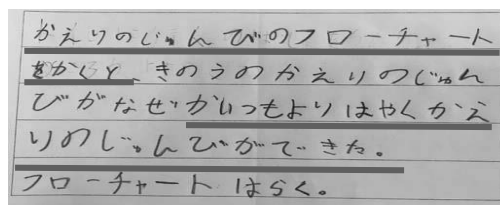 かえりのじゅんびのフローチャート
をかくと、きのうのかえりのじゅん
びがなぜかいつもよりはやくかえ
りのじゅんびができた。
フローチャートはらく。